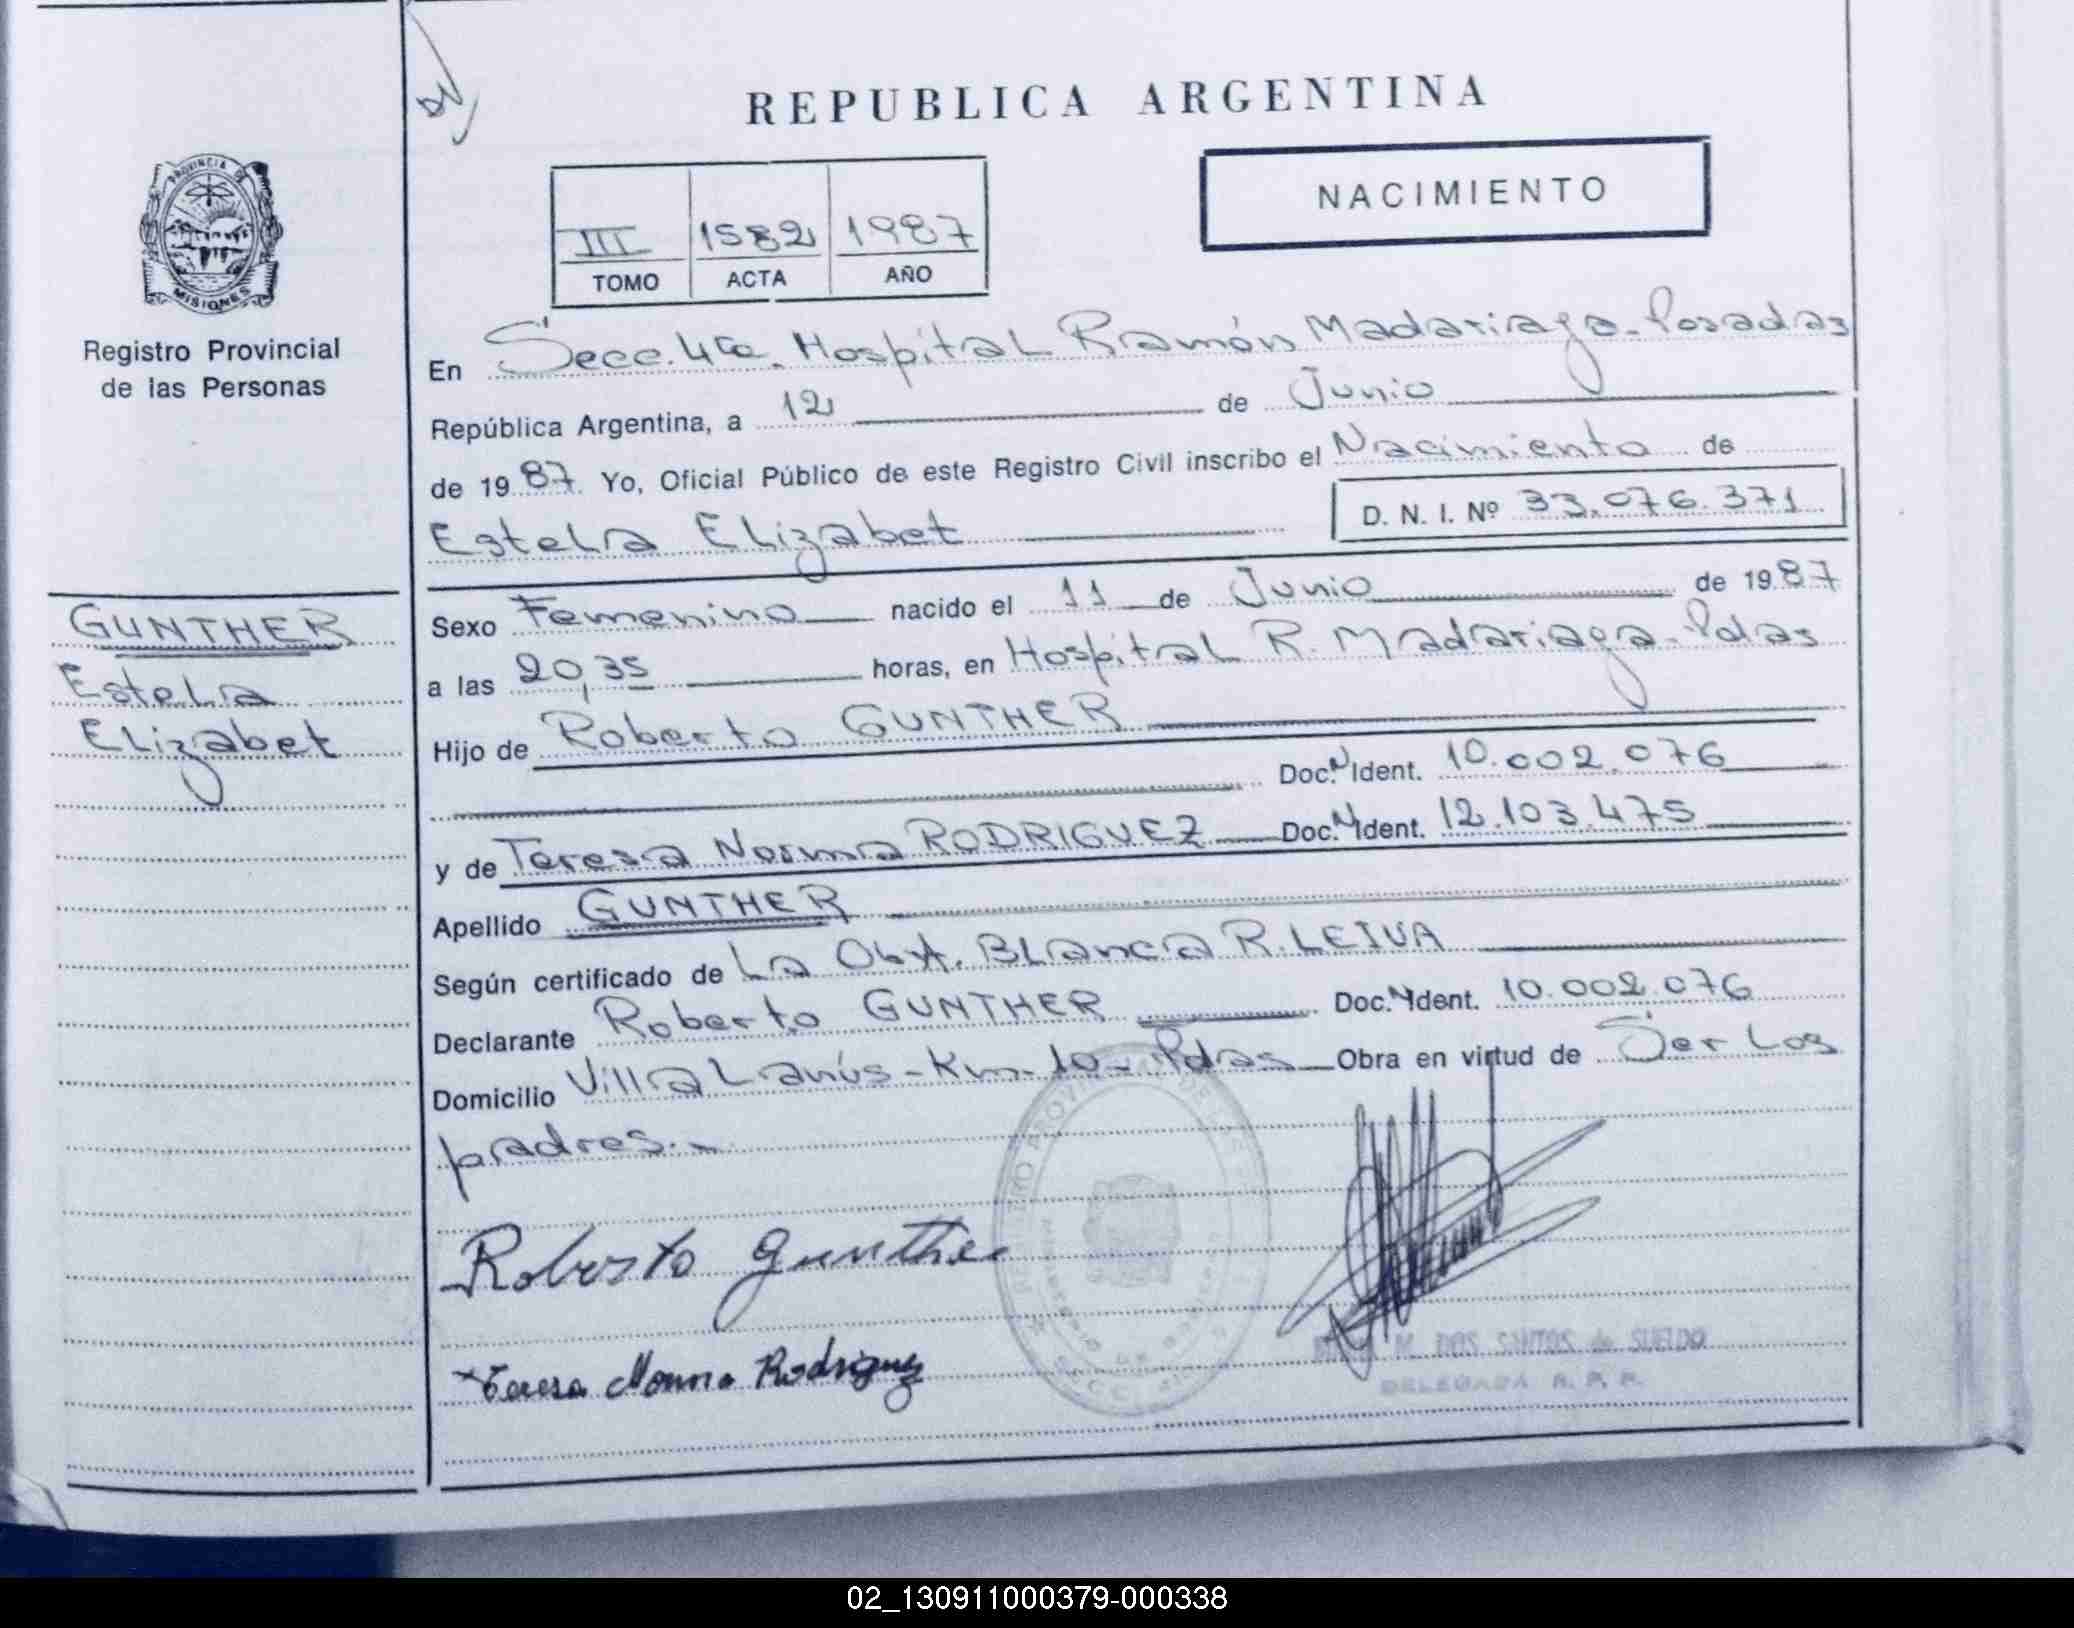 REPUBLICA ARGENTINA
NACIMIENTO
III 1582 1987
TOMO ACTA AÑO
PROVINCIA DE MISIONES
Registro Provincial
de las Personas
En Secc. 4ta. Hospital Ramón Madariaga - Posadas
República Argentina, a 12 de Junio
de 1987. Yo, Oficial Público de este Registro Civil inscribo el Nacimiento de
Estela Elizabet D. N. I. Nº 33.076.371
GUNTHER
Estela
Elizabet
Sexo Femenino nacido el 11 de Junio de 1987
a las 20,35 horas, en Hospital R. Madariaga - Pdas
Hijo de Roberto GUNTHER
Doc. N Ident. 10.002.076
y de Teresa Norma RODRIGUEZ Doc. N Ident. 12.103.475
Apellido GUNTHER
Según certificado de La Obst. Blanca R. LEIVA
Declarante Roberto GUNTHER Doc. N Ident. 10.002.076
Domicilio Villa Lanús - Km. 10 - Pdas Obra en virtud de Ser los
padres.-
Roberto Gunther
Teresa Norma Rodriguez
M. DOS SANTOS de
DELEGADA R. P. P.
02_130911000379-000338